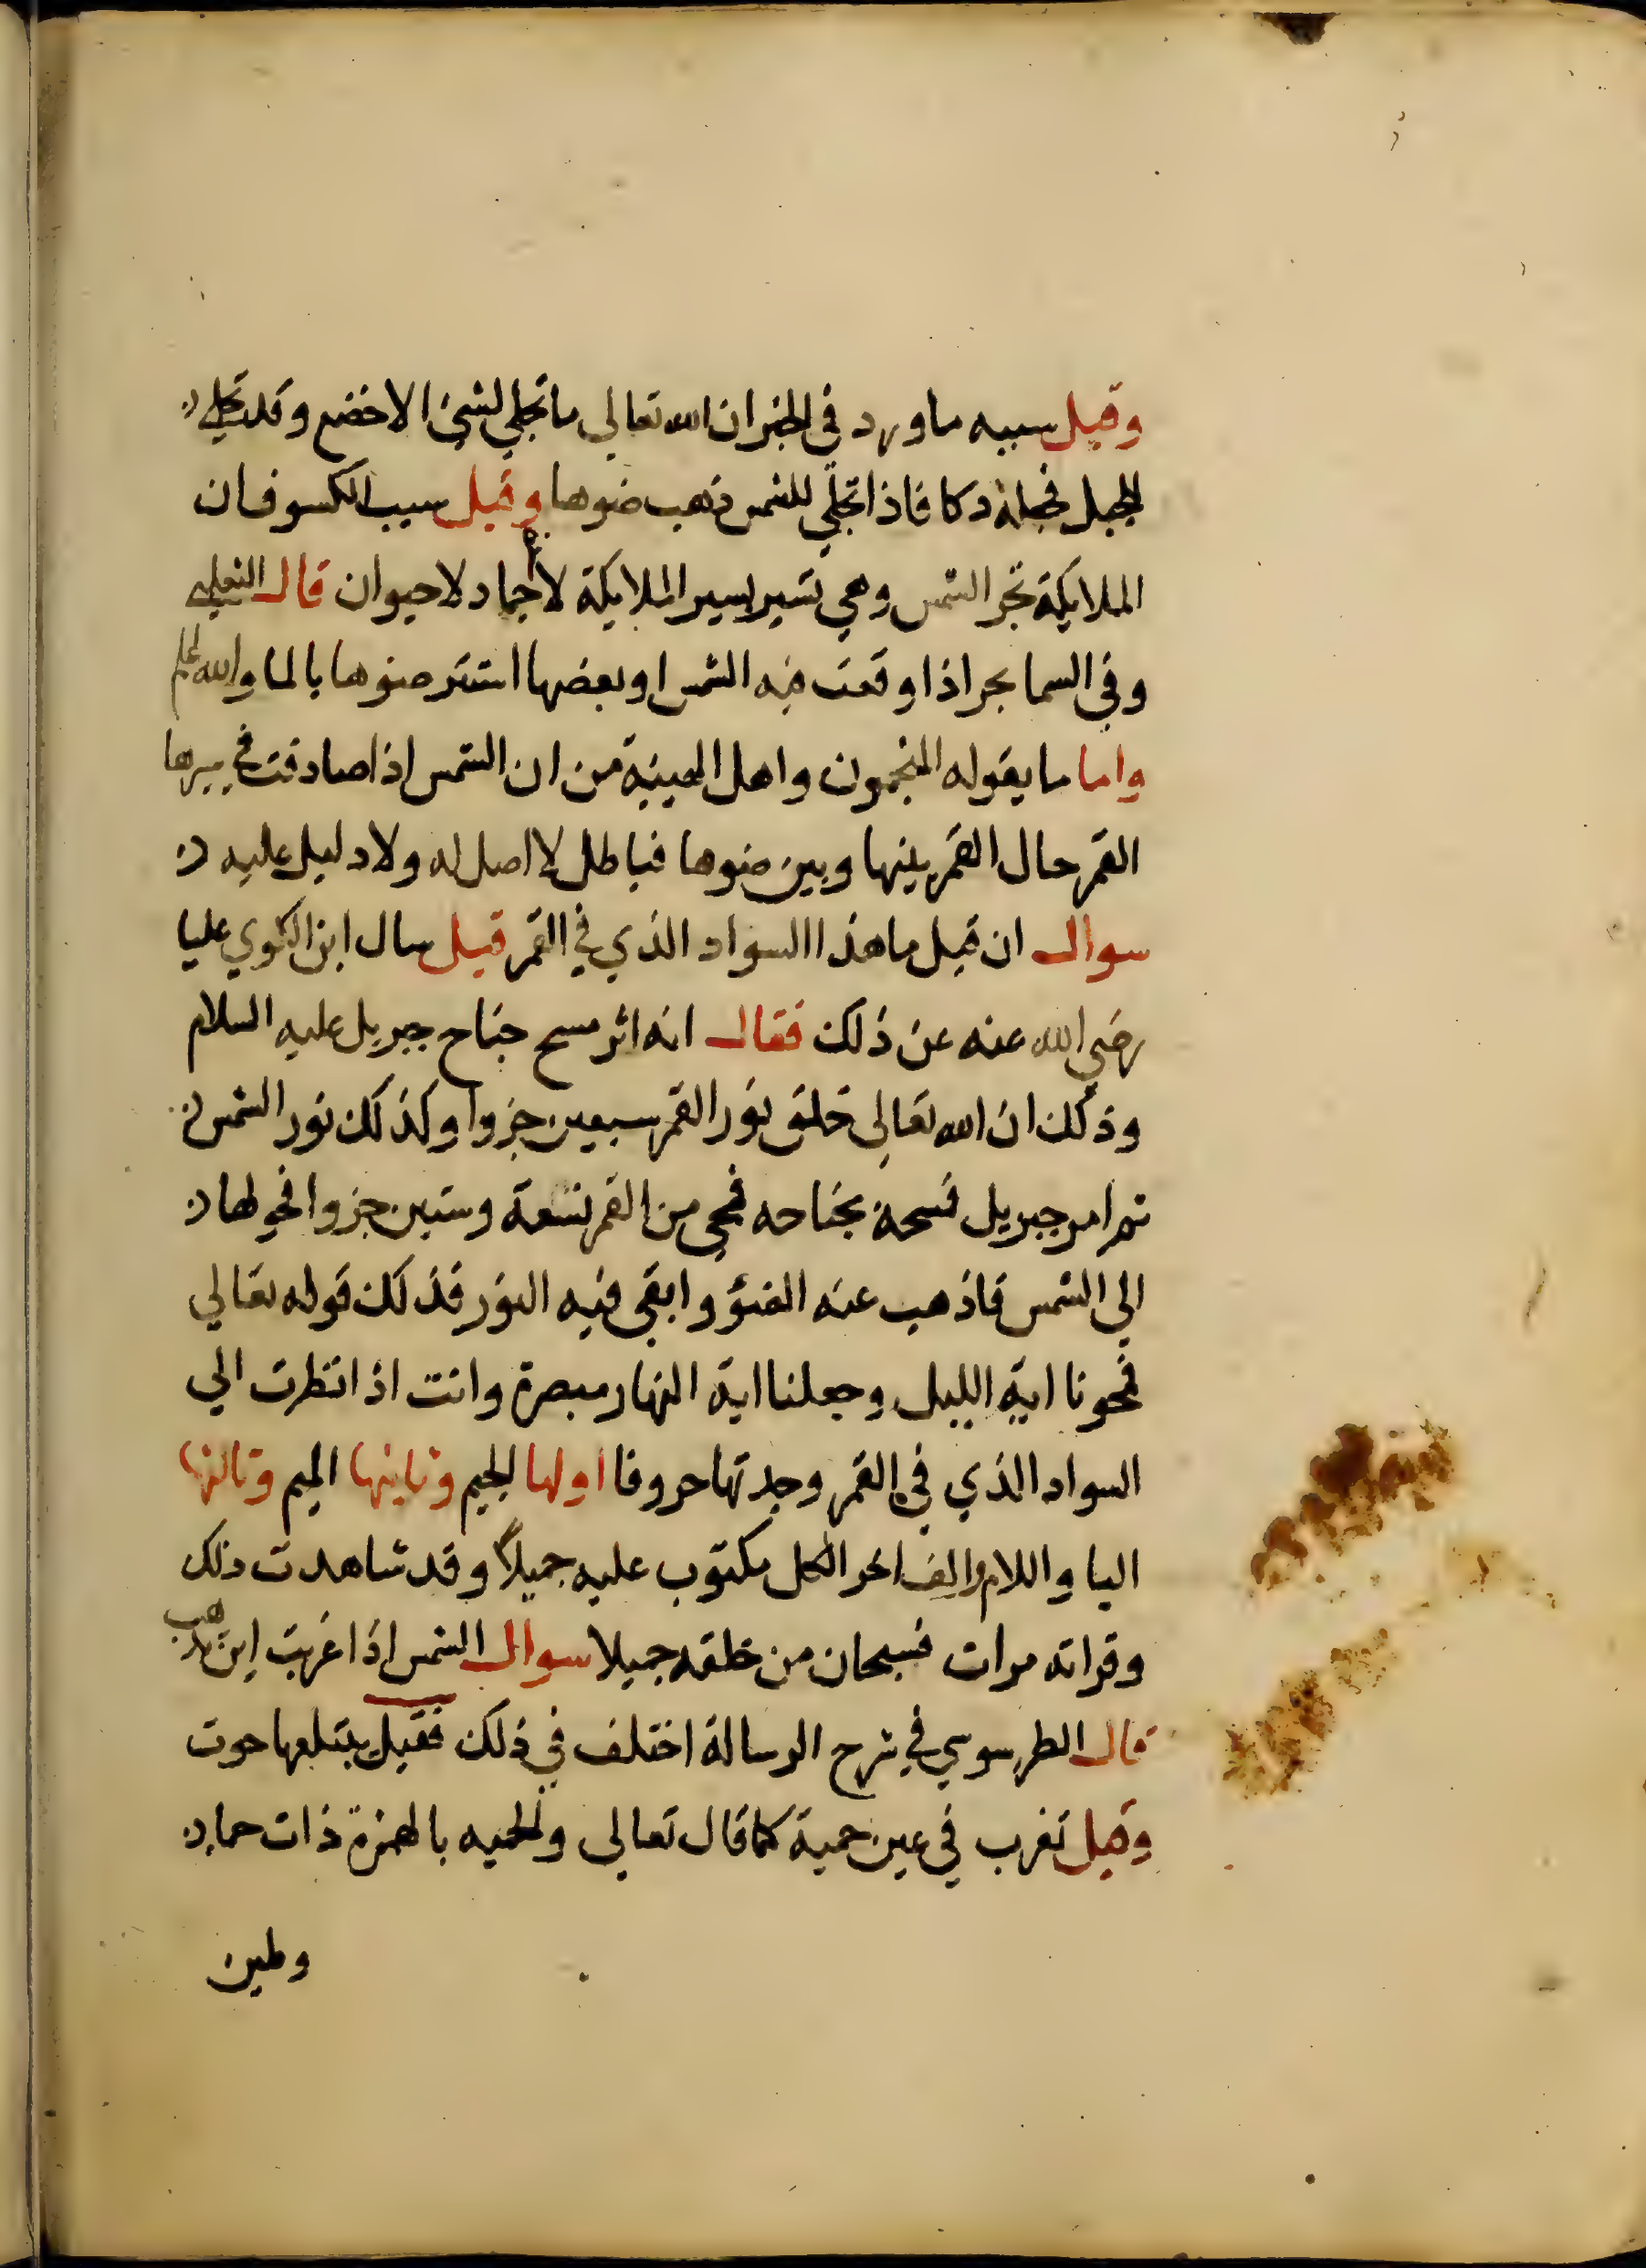 وقيل سببه ما ورد في الخبر ان الله تعالي ما تجلي لشئ الا خضع وقد تجلي
للجبل فجعله دكا فاذا تجلي للشمس ذهب ضوها وقيل سبب الكسوف ان
الملايكة تجر الشمس وهي تسير بسير الملايكة لا جماد لا حيوان قال الثعلبي
وفي السما بحر اذا وقعت فيه الشمس او بعضها استتر ضوها بالما والله اعلم
واما ما يقوله المنجمون واهل الهيية من ان الشمس اذا صادفت في سيرها
القمر حال القمر بينها وبين ضوها فباطل لا اصل له ولا دليل عليه
سوال ان قيل ما هذا السواد الذي في القمر قيل سال ابن الكوي عليا
رضي الله عنه عن ذلك فقال انه اثر مسح جناح جبريل عليه السلام
وذلك ان الله تعالي خلق نور القمر سبعين جزوا وكذلك نور الشمس
ثم امر جبريل فمسحه بجناحه فمحي من القمر تسعة وستين جزوا فحولها
الي الشمس فاذهب عنه الضوؤ وابقي فيه النور فذلك قوله تعالي
فمحونا اية الليل وجعلنا اية النهار مبصرة وانت اذا نظرت الي
السواد الذي في القمر وجدتها حروفا اولها الجيم وثانيها الميم وثالثها
اليا واللام والف اخر الكل مكتوب عليه جميلا وقد شاهدت ذلك
وقراته مرات فسبحان من خلقه جميلا سوال الشمس اذا غربت اين تذهب
قال الطرسوسي في شرح الرسالة اختلف في ذلك فقيل يبتلعها حوت
وقيل تغرب في عين حمية كما قال تعالي والحميه بالهمزة ذات حماة
وطين